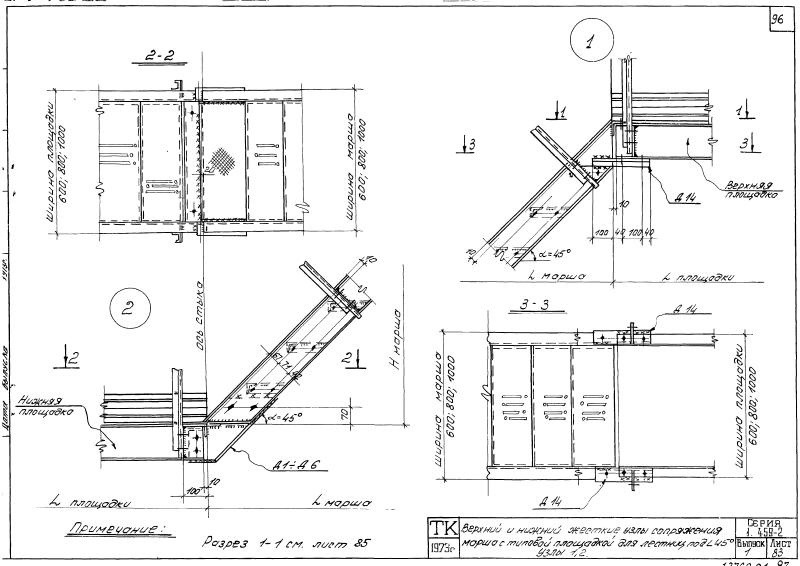 96
2-2
ширина площадки
600; 800; 1000
ширина марша
600; 800; 1000
1
1
1
3
3
Верхняя
площадка
Д 14
10
100 40 100 40
α=45°
L марша
L площадки
2
ось стыка
H марша
2
2
Нижняя
площадка
α=45°
70
Д1÷Д6
100
10
L площадки
L марша
3-3
Д 14
ширина марша
600; 800; 1000
ширина площадки
600; 800; 1000
Д 14
Примечание:
Разрез 1-1 см. лист 85
ТК
1973г
Верхний и нижний жесткие узлы сопряжения
марша с типовой площадкой для лестниц под ∠45°
Узлы 1,2.
Серия
1.459-2
Выпуск
1
Лист
83